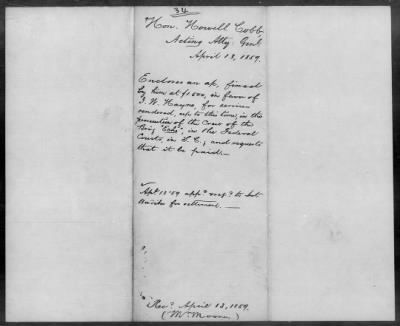 34
Hon. Howell Cobb
Acting Atty. Genl
April 13, 1859.
Encloses an a/c, fixed
by him at $1500, in favor of
I. W. Hayne, for services
rendered, up to this time, in the
prosecution of the Crew of the
Brig "Echo", in the Federal
Courts, in S. C.; and requests
that it be paid.
Apl. 13 '59 appd
for settlement.
Recd. April 13, 1859.
(Mr. Moore)